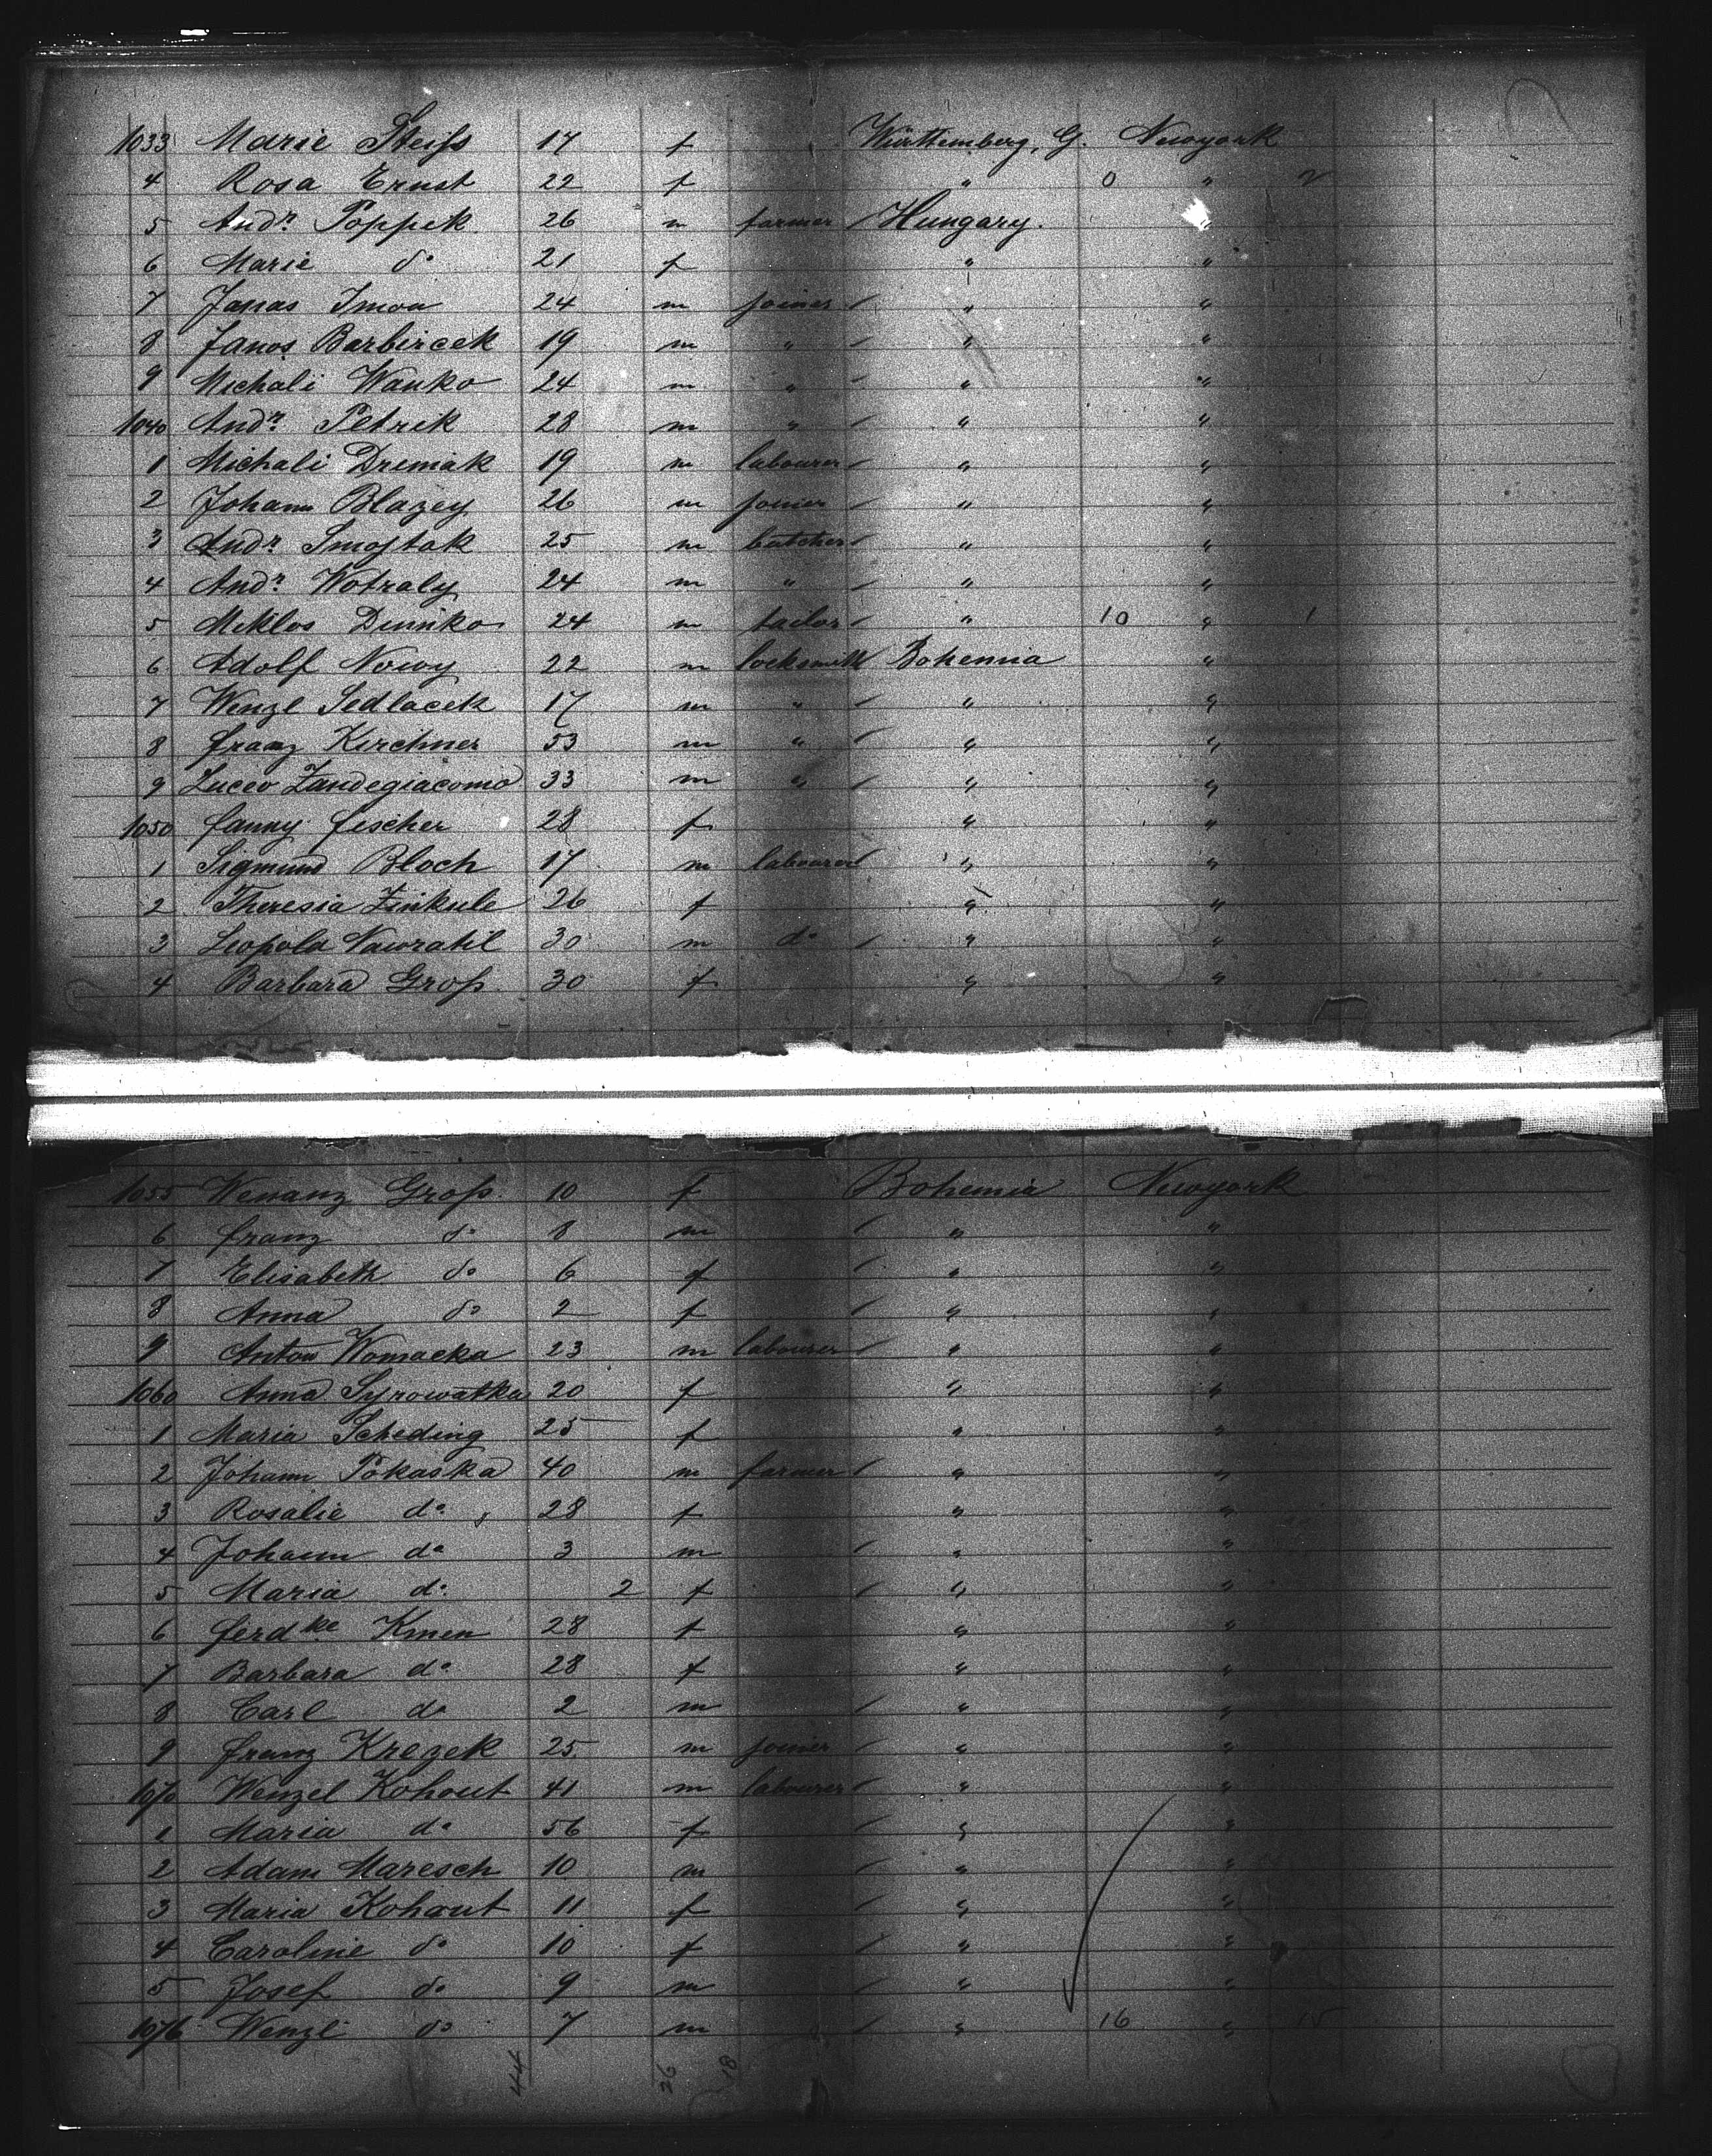 1033 Marie Steifs 17 f Württemberg, G. Newyork
4 Rosa Ernst 22 f " 0 " 2
5 Andr. Poppek 26 m farmer / Hungary. "
6 Marie do 21 f " "
7 Janas Imon 24 m joiner / " "
8 Janos Barbircek 19 m " / " "
9 Michali Wanko 24 m " / " "
1040 Andr. Petrik 28 m " / " "
1 Michali Dremak 19 m labourer / " "
2 Johann Blazey 26 m joiner / " "
3 Andr. Smojtak 25 m butcher / " "
4 Andr. Wotraly 24 m " / " "
5 Miklos Dunnko 24 m tailor / " 10 " 1
6 Adolf Nowy 22 m locksmith Bohemia "
7 Wenzl Sedlacek 17 m " / " "
8 Franz Kirchner 53 m " / " "
9 Zandegiacomo 33 m " / " "
1050 Fanny Fischer 28 f " "
1 Sigmund Bloch 17 m labourer / " "
2 Theresia Zinkule 26 f " "
3 Leopold Nawratil 30 m do / " "
4 Barbara Grofs. 30 f " "
1055 Wenanz Grofs. 10 f Bohemia Newyork
6 Franz do 8 m / " "
7 Elisabeth do 6 f / " "
8 Anna do 2 f / " "
9 Anton Womacka 23 m labourer / " "
1060 Anna Syrowatka 20 f " "
1 Maria Scheding 25 f " "
2 Johann Pokaska 40 m farmer / " "
3 Rosalie do 28 f " "
4 Johann do 3 m / " "
5 Maria do 2 f / " "
6 Ferdke Kmen 28 f " "
7 Barbara do 28 f " "
8 Carl do 2 m / " "
9 Franz Krezek 25 m joiner / " "
1070 Wenzel Kohout 41 m labourer / " "
1 Maria do 56 f " "
2 Adam Maresch 10 m / " "
3 Maria Kohout 11 f / " "
4 Caroline do 10 f / " "
5 Josef do 9 m / " "
1076 Wenzl do 7 m / " 16 " 15
44 26 18